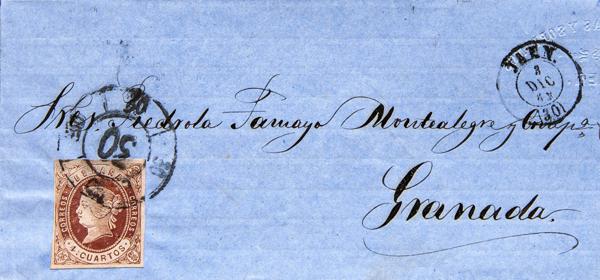 JAEN.
3
DIC
62
(30)
Sres. Piedrola Tamayo Montealegre y Compa.
30
CORREOS
4 CUARTOS
Granada.